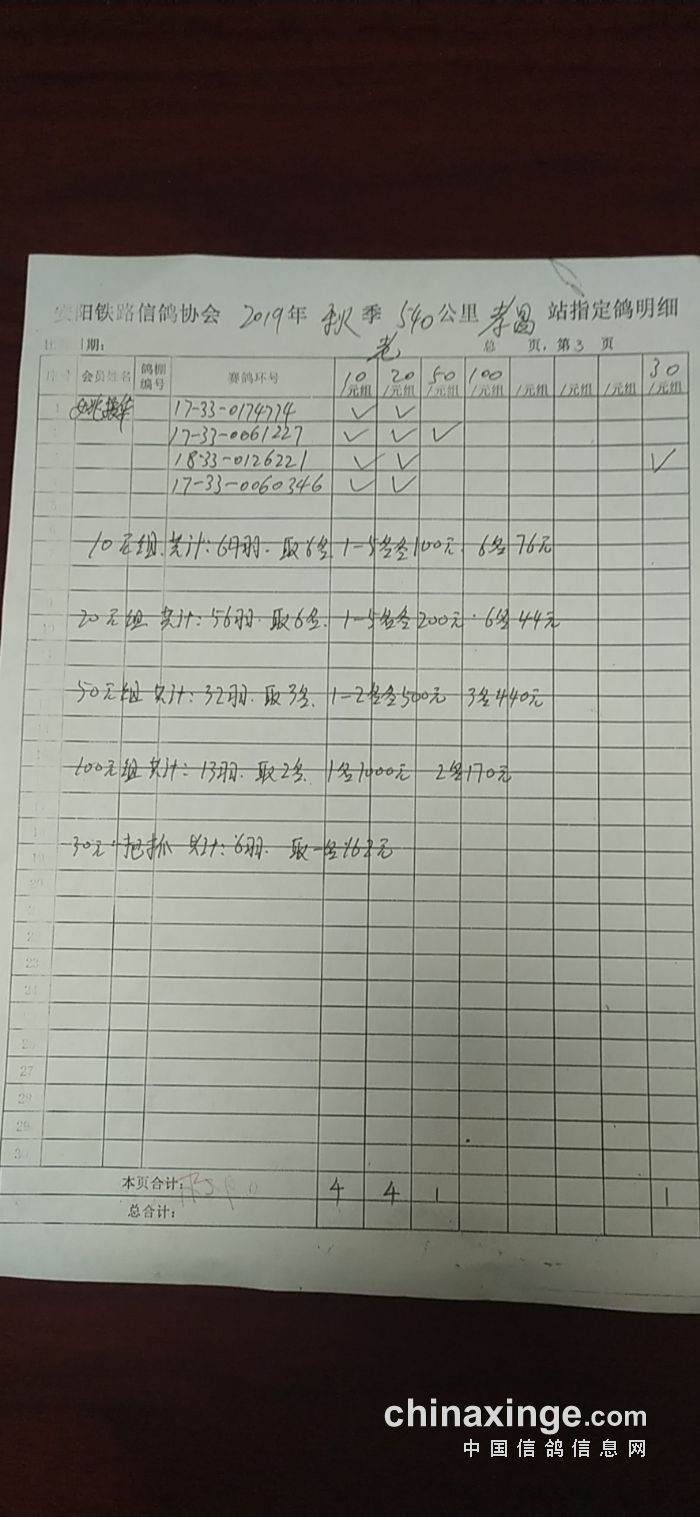 安阳铁路信鸽协会 2019年 秋季 540公里 孝昌 站指定鸽明细
老
日期： 总 页，第3 页
序号 会员姓名 鸽棚编号 赛鸽环号 10/元组 20/元组 50/元组 100/元组 /元组 /元组 /元组 30/元组
1 17-33-0174714 ✓ ✓
17-33-0061227 ✓ ✓ ✓
18-33-0126221 ✓ ✓ ✓
17-33-0060346 ✓ ✓
10元组 共计：羽. 取6名 1-5名各100元. 6名76元
20元组 共计：56羽. 取6名. 1-5名各200元. 6名44元
50元组 共计：32羽. 取3名. 1-2名各500元 3名440元
100元组 共计：13羽. 取2名. 1名1000元 2名170元
30元一把抓 共计：6羽. 取一名162元
20
23
24
27
28
29
30
本页合计： 4 4 1 1
总合计：
chinaxinge.com
中国信鸽信息网